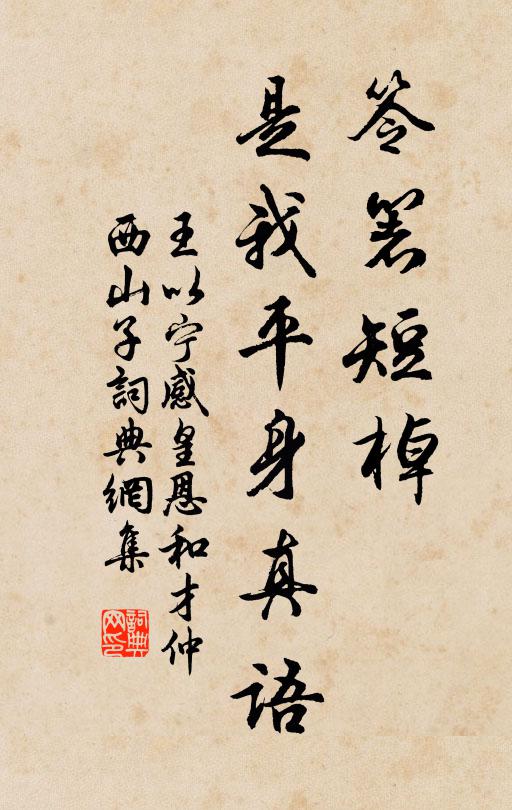 笭箬短棹
是我平身真語
王以宁感皇恩和才仲
西山子詞典網集
詞典网印